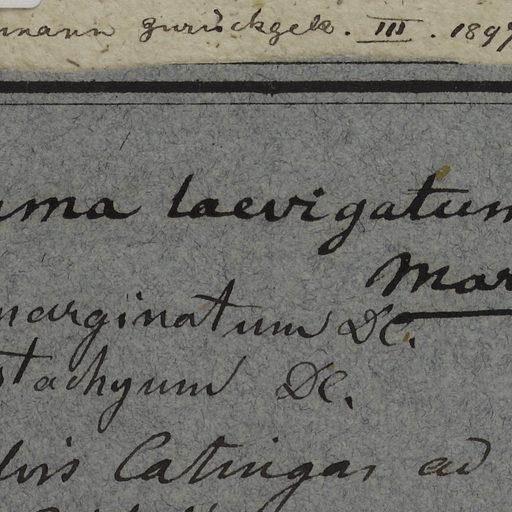 mann zurückgeb. III. 1897
uma laevigatum
Mar
marginatum DC.
stachyum DC.
lvis Catingas ad